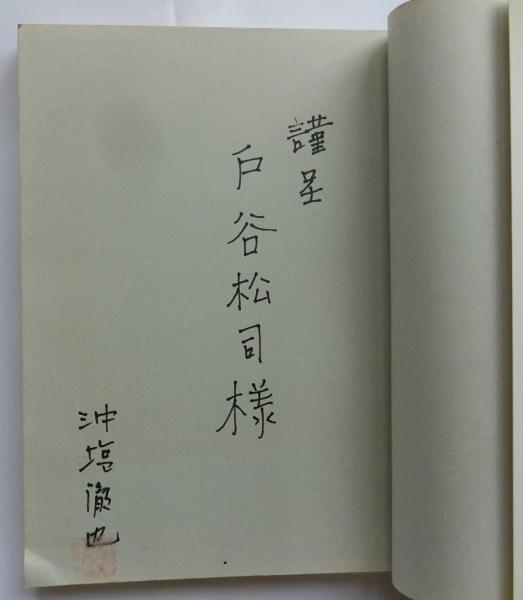 謹呈
戸谷松司様
沖塩徹也